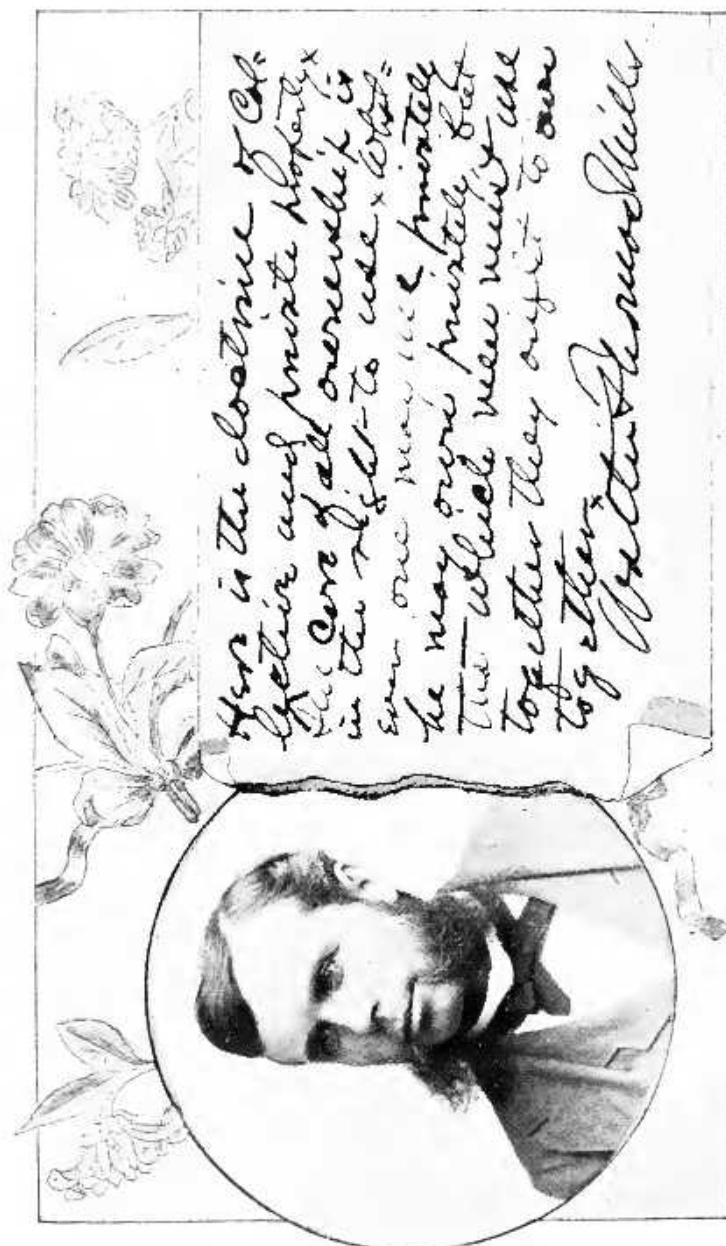 Here is the doctrine of Col=
lective and private property x
The Core of all ownership is
in the right to use x What=
ever one may use privately
he may own privately but
that which men must use
together they ought to own
together x
Walter Thomas Mills